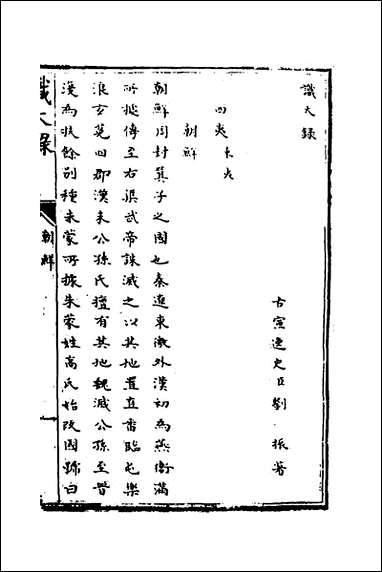 識大錄
古宣逸史臣劉振著
四夷 東夷
朝鮮
朝鮮周封箕子之國也秦遼東徼外漢初為燕衛滿
所據傳至右渠武帝誅滅之以其地置真番臨屯樂
浪玄菟四郡漢末公孫氏擅有其地魏滅公孫至晉
淺為扶餘別種朱蒙所據朱蒙姓高氏始改國號曰
識大錄
朝鮮